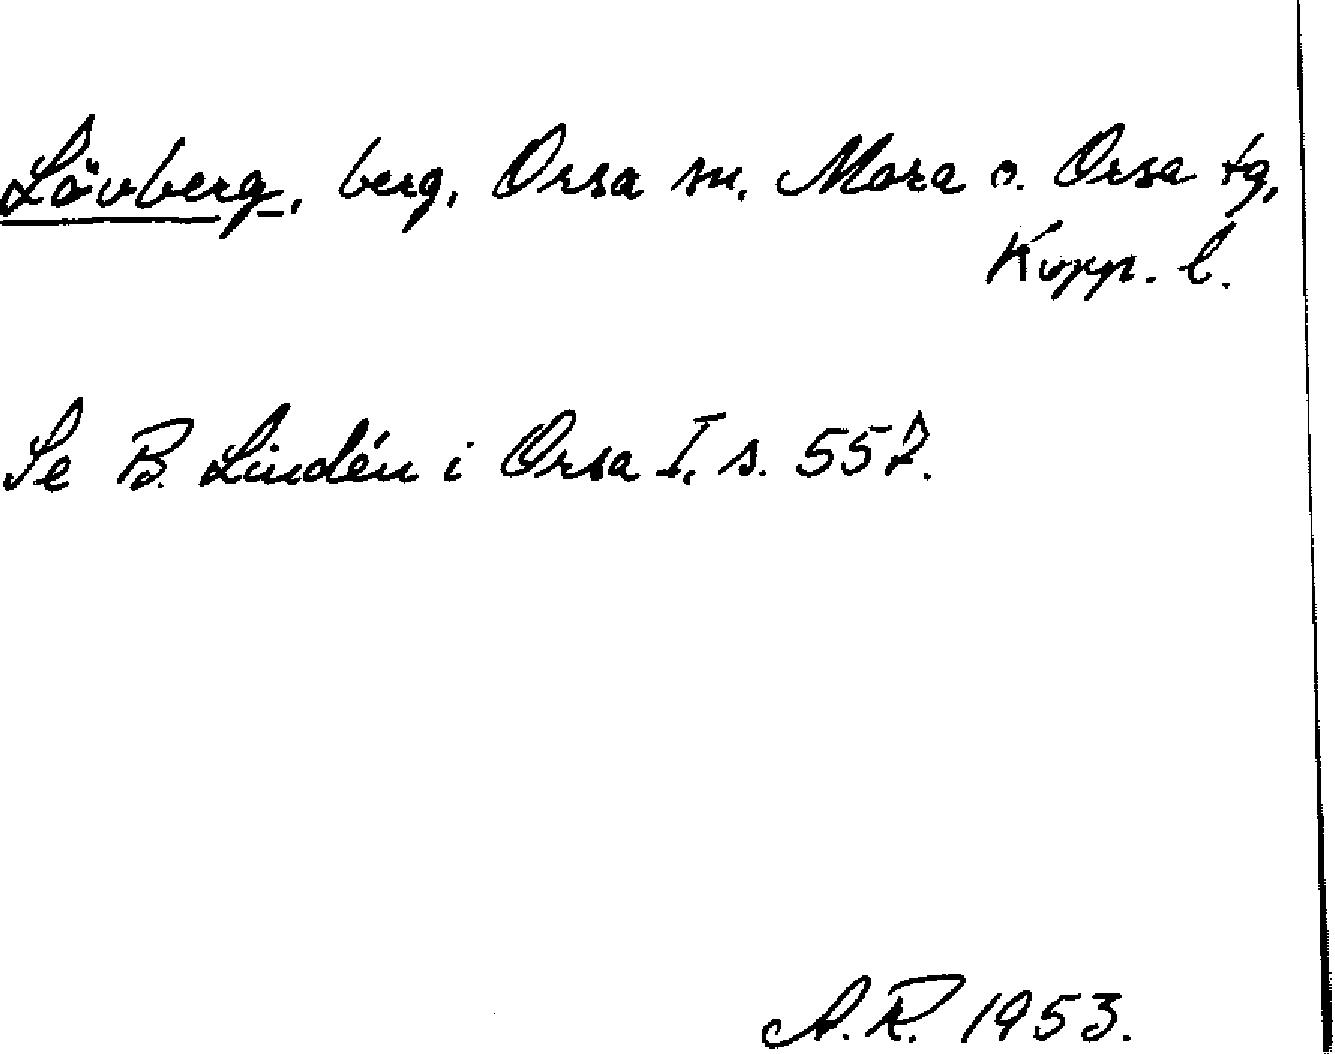 Lövberg, berg, Orsa sn. Mora o. Orsa tg,
Kopp. l.
Se B. Lindén i Orsa I, s. 557.
A.R. 1953.